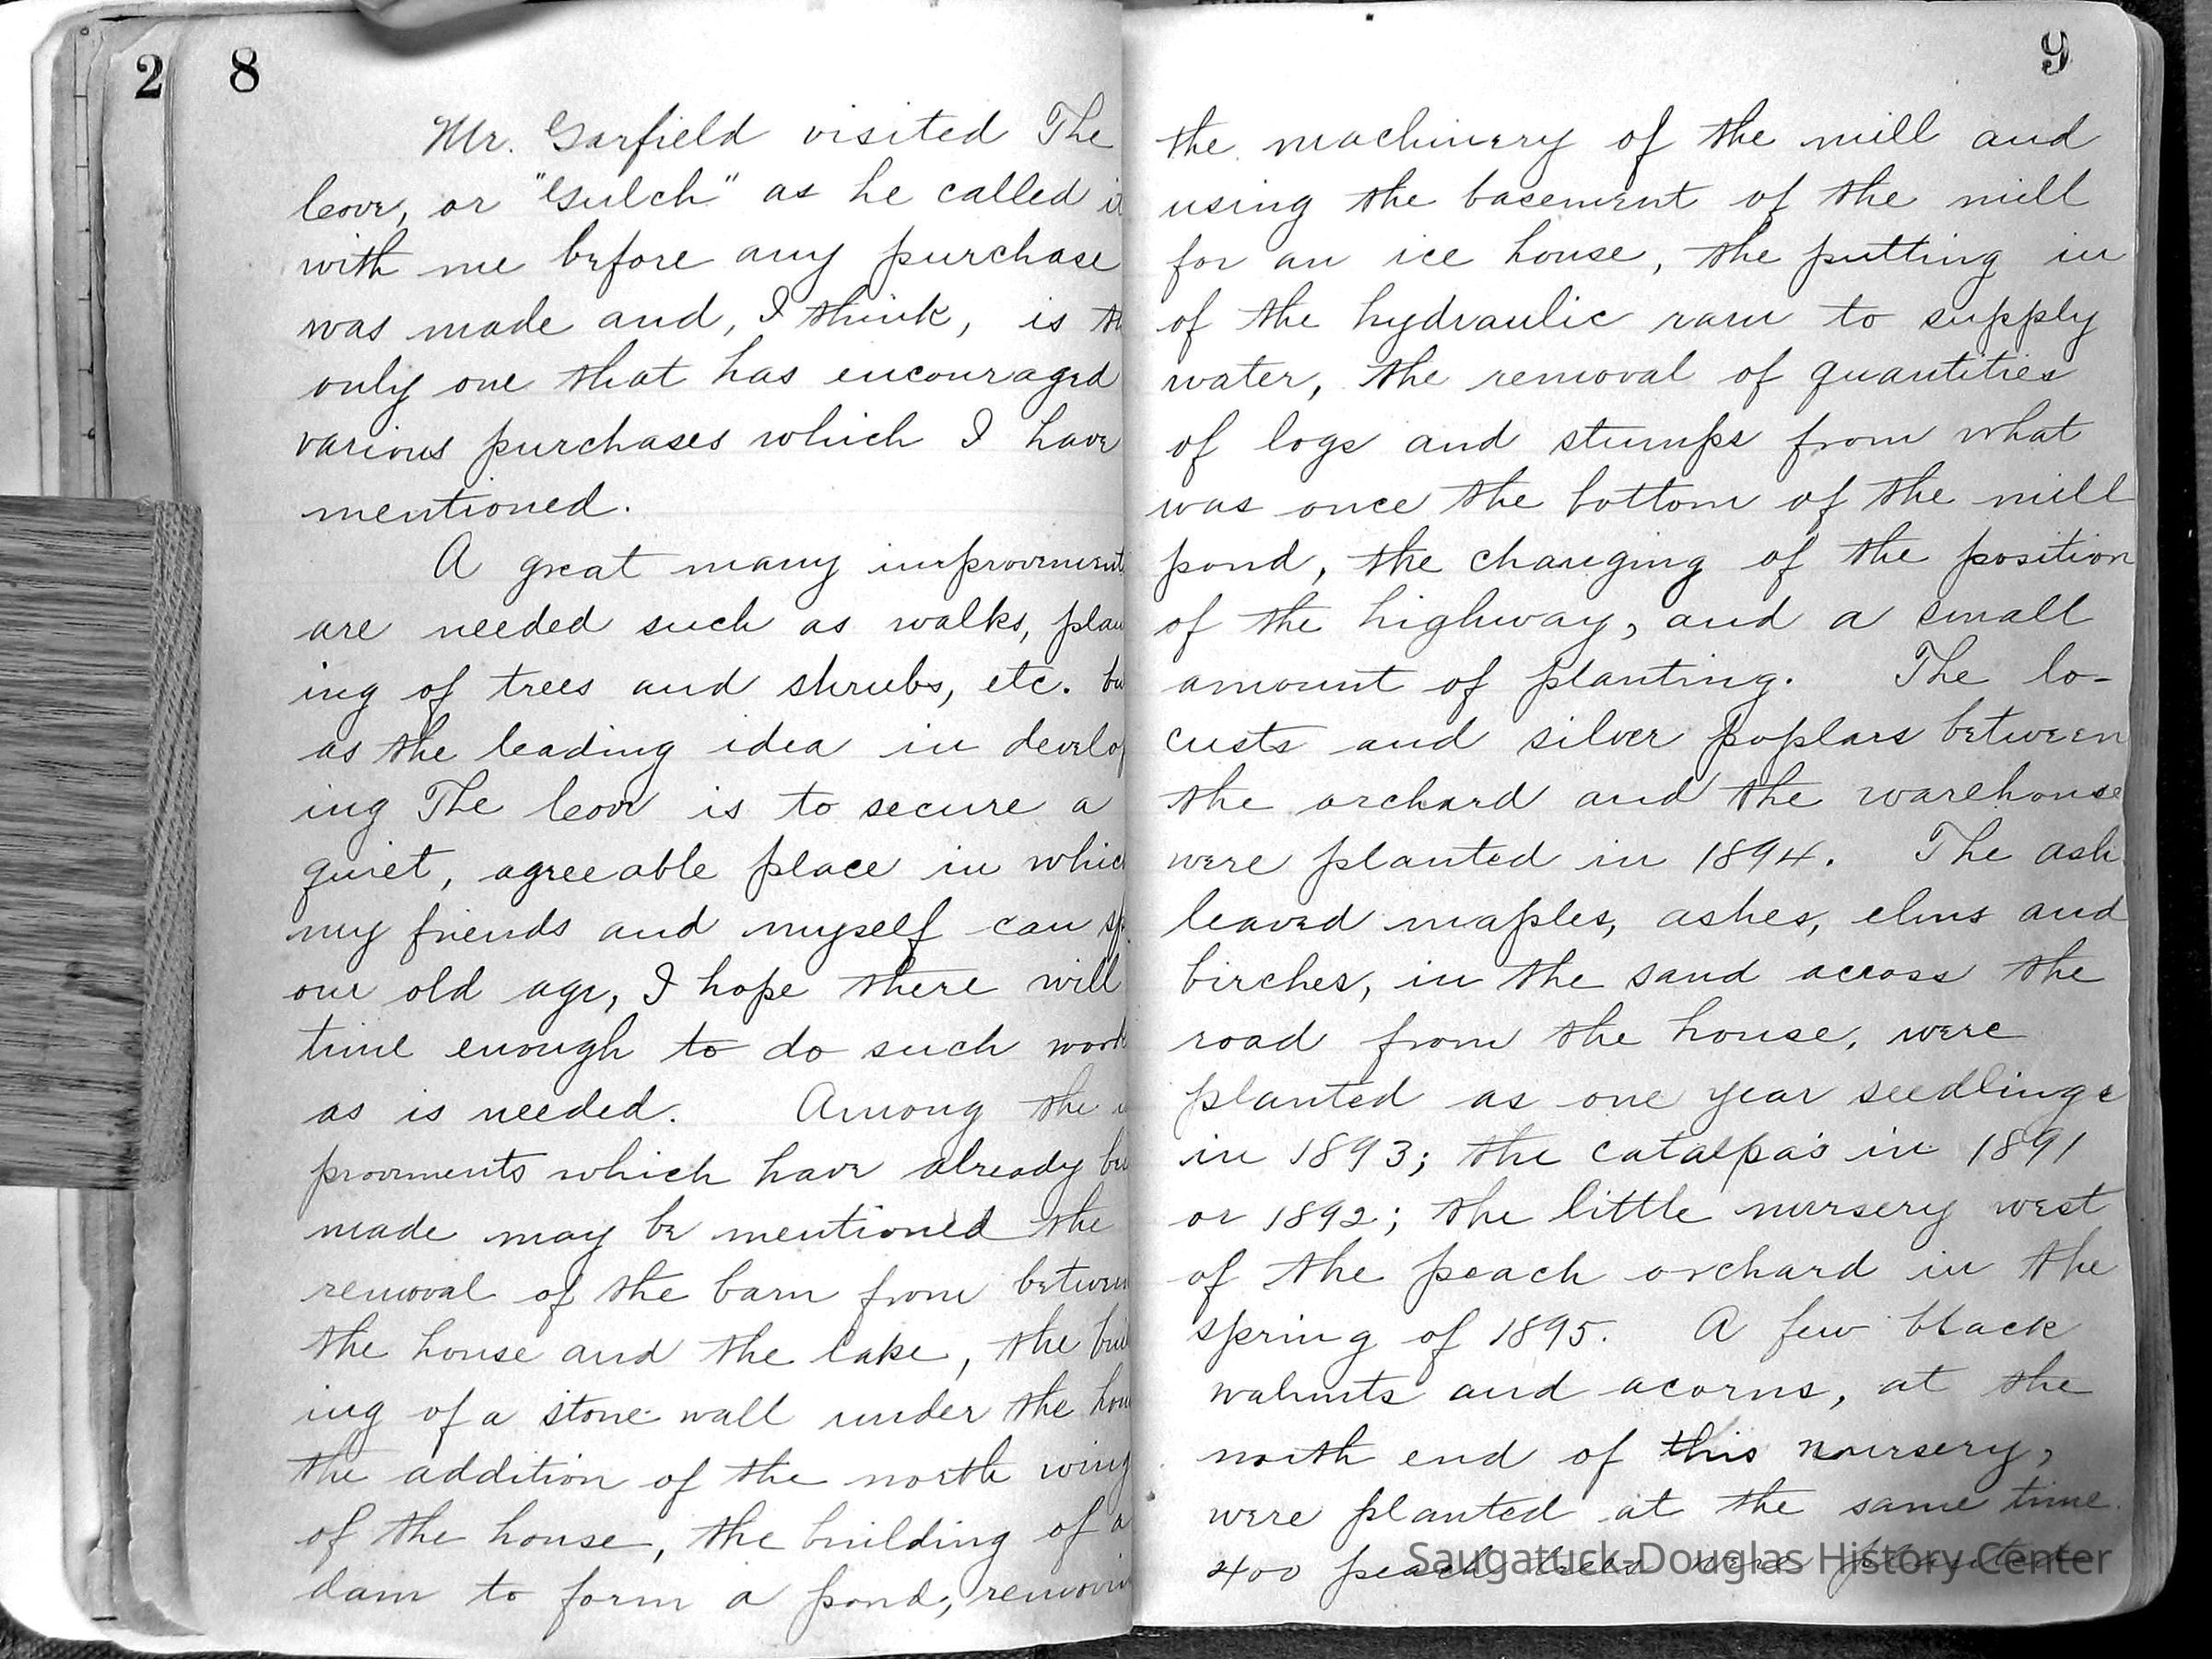 2
8
Mr. Garfield visited The
Cove, or "Gulch" as he called it
with me before any purchase
was made and, I think, is th
only one that has encouraged
various purchases which I have
mentioned.
A great many improvement
are needed such as walks, plan
ing of trees and shrubs, etc. bu
as the leading idea in develop
ing The Cove is to secure a
quiet, agreeable place in which
my friends and myself can sp
our old age, I hope there will
time enough to do such work
as is needed. Among the i
provments which have already be
made may be mentioned the
removal of the barn from between
the house and the lake, the bui
ing of a stone wall under the hou
the addition of the north wing
of the house, the building of a
dam to form a pond, removin
9
the machinery of the mill and
using the basement of the mill
for an ice house, the putting in
of the hydraulic ram to supply
water, the removal of quantities
of logs and stumps from what
was once the bottom of the mill
pond, the changing of the position
of the highway, and a small
amount of planting. The lo-
custs and silver poplars between
the orchard and the warehouse
were planted in 1894. The ash
leaved maples, ashes, elms and
birches, in the sand across the
road from the house, were
planted as one year seedlings
in 1893; the catalpas in 1891
or 1892; the little nursery west
of the peach orchard in the
spring of 1895. A few black
walnuts and acorns, at the
north end of this nursery,
were planted at the same time.
400 peach trees were planted
Saugatuck-Douglas History Center